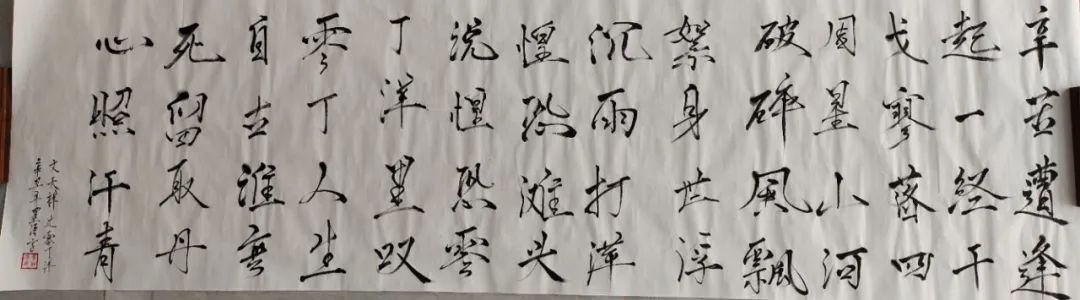 辛苦遭逢
起一经干
戈寥落四
周星山河
破碎風飄
絮身世浮
沉雨打萍
惶恐滩头
说惶恐零
丁洋里叹
零丁人生
自古谁無
死留取丹
心照汗青
文天祥过零丁洋
辛丑年